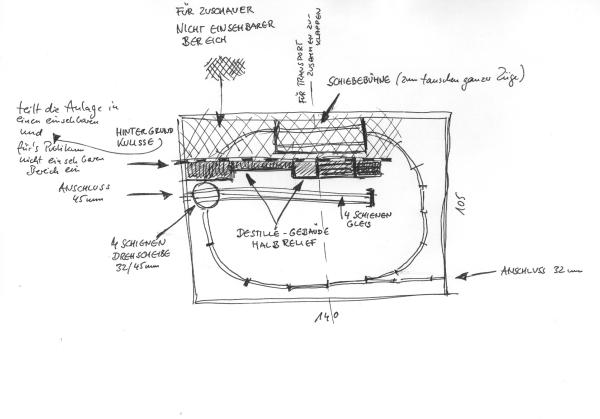 FÜR ZUSCHAUER
NICHT EINSEHBARER
BEREICH
FÜR TRANSPORT
ZUSAMMEN ZU-
KLAPPEN
SCHIEBEBÜHNE (zum tauschen ganzer Züge)
teilt die Anlage in
einen einsehbaren
und
für's Publikum
nicht einsehbaren
Bereich ein
HINTERGRUND
KULISSE
ANSCHLUSS
45mm
4 SCHIENEN
DREHSCHEIBE
32/45mm
DESTILLE-GEBÄUDE
HALBRELIEF
4 SCHIENEN
GLEIS
105
ANSCHLUSS 32mm
140